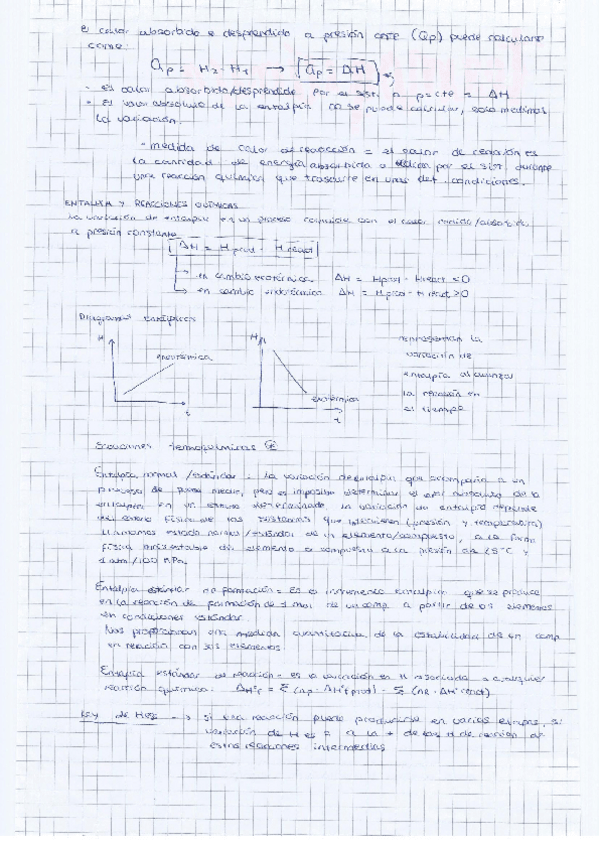 calor absorbido o desprendido a presión cte (Qp) puede calcularse
como:
Qp = H2 - H1 → Qp = ΔH
- es calor absorbido/desprendido por el sist a p=cte = ΔH
- El valor absoluto de la entalpía no se puede calcular, solo medimos
la variación.
- medida de calor de reacción = el calor de reacción es
la cantidad de energía absorbida o cedida por el sist durante
una reacción química que trascurre en unas det. condiciones.
ENTALPIA Y REACCIONES QUÍMICAS
La variación de entalpía en un proceso coincide con el calor
a presión constante
ΔH = Hprod - Hreact
→ en cambio exotérmico ΔH = Hprod - Hreact < 0
→ en cambio endotérmico ΔH = Hprod - Hreact > 0
Diagramas entálpicos
H endotérmica t
H exotérmica t
representan la
variación de
entalpía al avanzar
la reacción en
el tiempo
Ecuaciones termoquímicas
Entalpía normal/estándar: La variación de entalpía que acompaña a un
proceso se puede medir, pero es imposible determinar el valor absoluto de la
entalpía en un estado determinado, la variación de entalpía depende
del estado físico de las sustancias que intervienen (presión y temperatura)
Llamamos estado normal/estándar de un elemento/compuesto, a la forma
física más estable del elemento o compuesto a la presión de 25°C y
1 atm/100 KPa.
Entalpía estándar de formación = Es el incremento entálpico que se produce
en la reacción de formación de 1 mol de un comp. a partir de los elementos
en condiciones estándar.
Nos proporcionan una medida cuantitativa de la estabilidad de un comp
en relación con sus elementos.
Entalpía estándar de reacción = es la variación en H asociada a cualquier
reacción química. ΔH°r = Σ (np · ΔH°f prod) - Σ (nR · ΔH°f react)
Ley de Hess → si una reacción puede producirse en varias etapas, su
variación de H es = a la + de las H de reacción de
estas reacciones intermedias